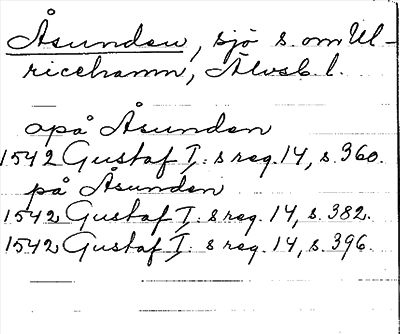 Åsunden, sjö s. om Ul-
ricehamn, Älvsb. l.
opå Åsunden
1542 Gustaf I: s reg. 14, s. 360.
på Åsunden
1542 Gustaf I: s reg. 14, s. 382.
1542 Gustaf I: s reg. 14, s. 396.